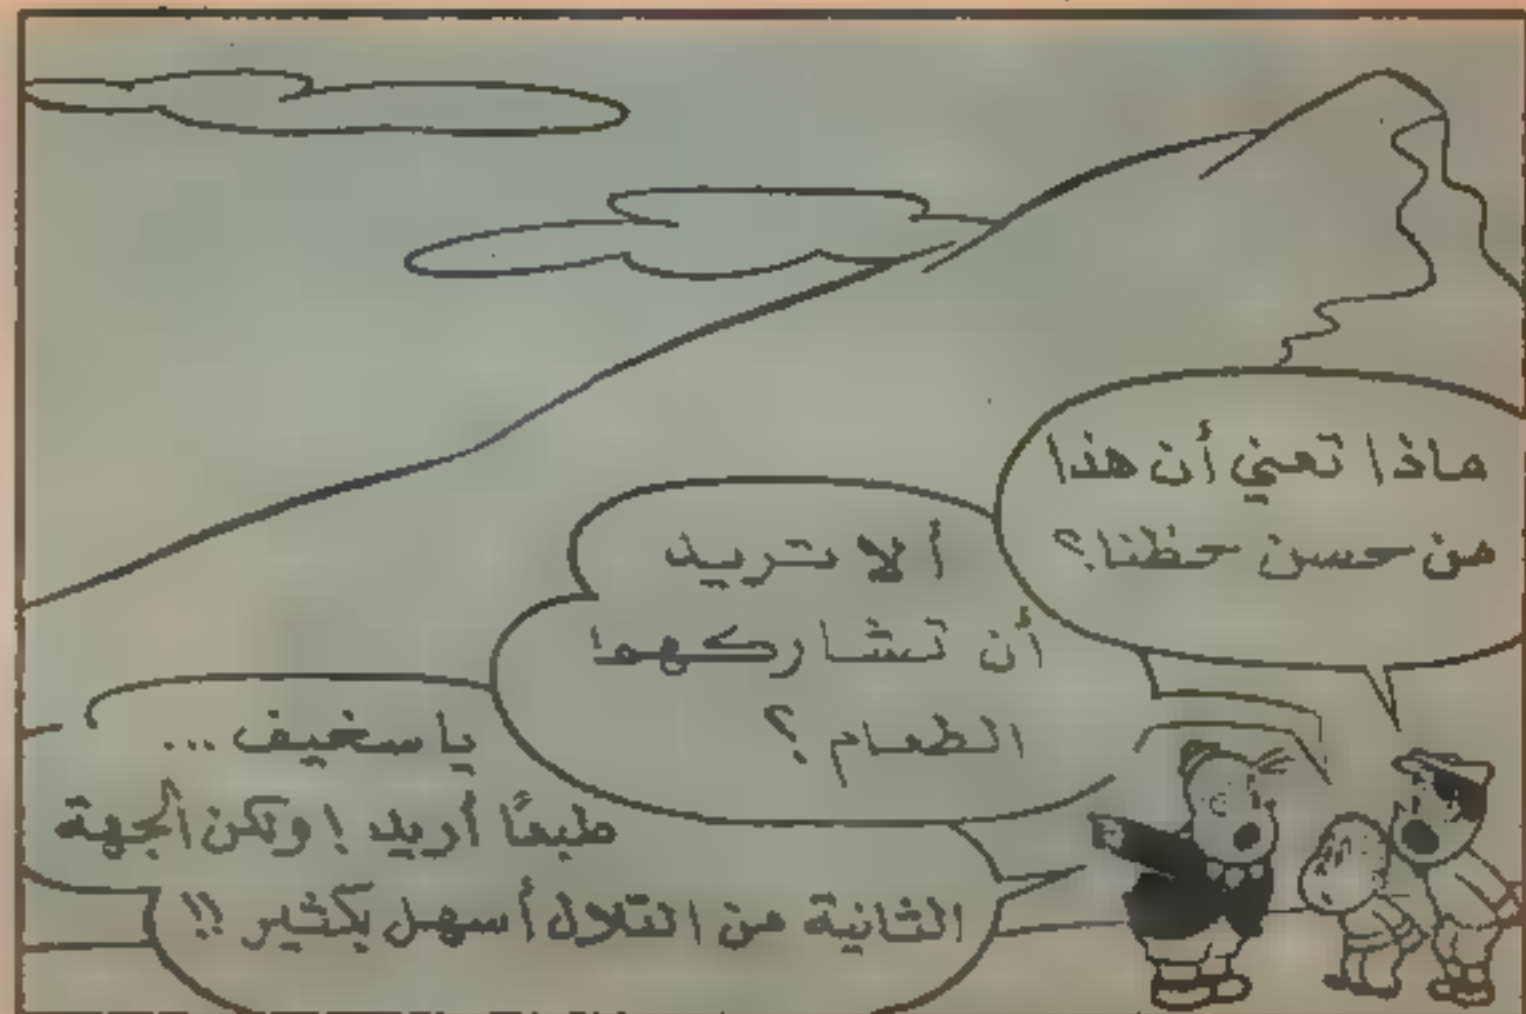 ماذا تعني أن هذا
من حسن حظنا؟
ألا تريد
أن تشاركهما
الطعام؟
يا سخيف ...
طبعًا أريد! ولكن الجهة
الثانية من التلال أسهل بكثير!!